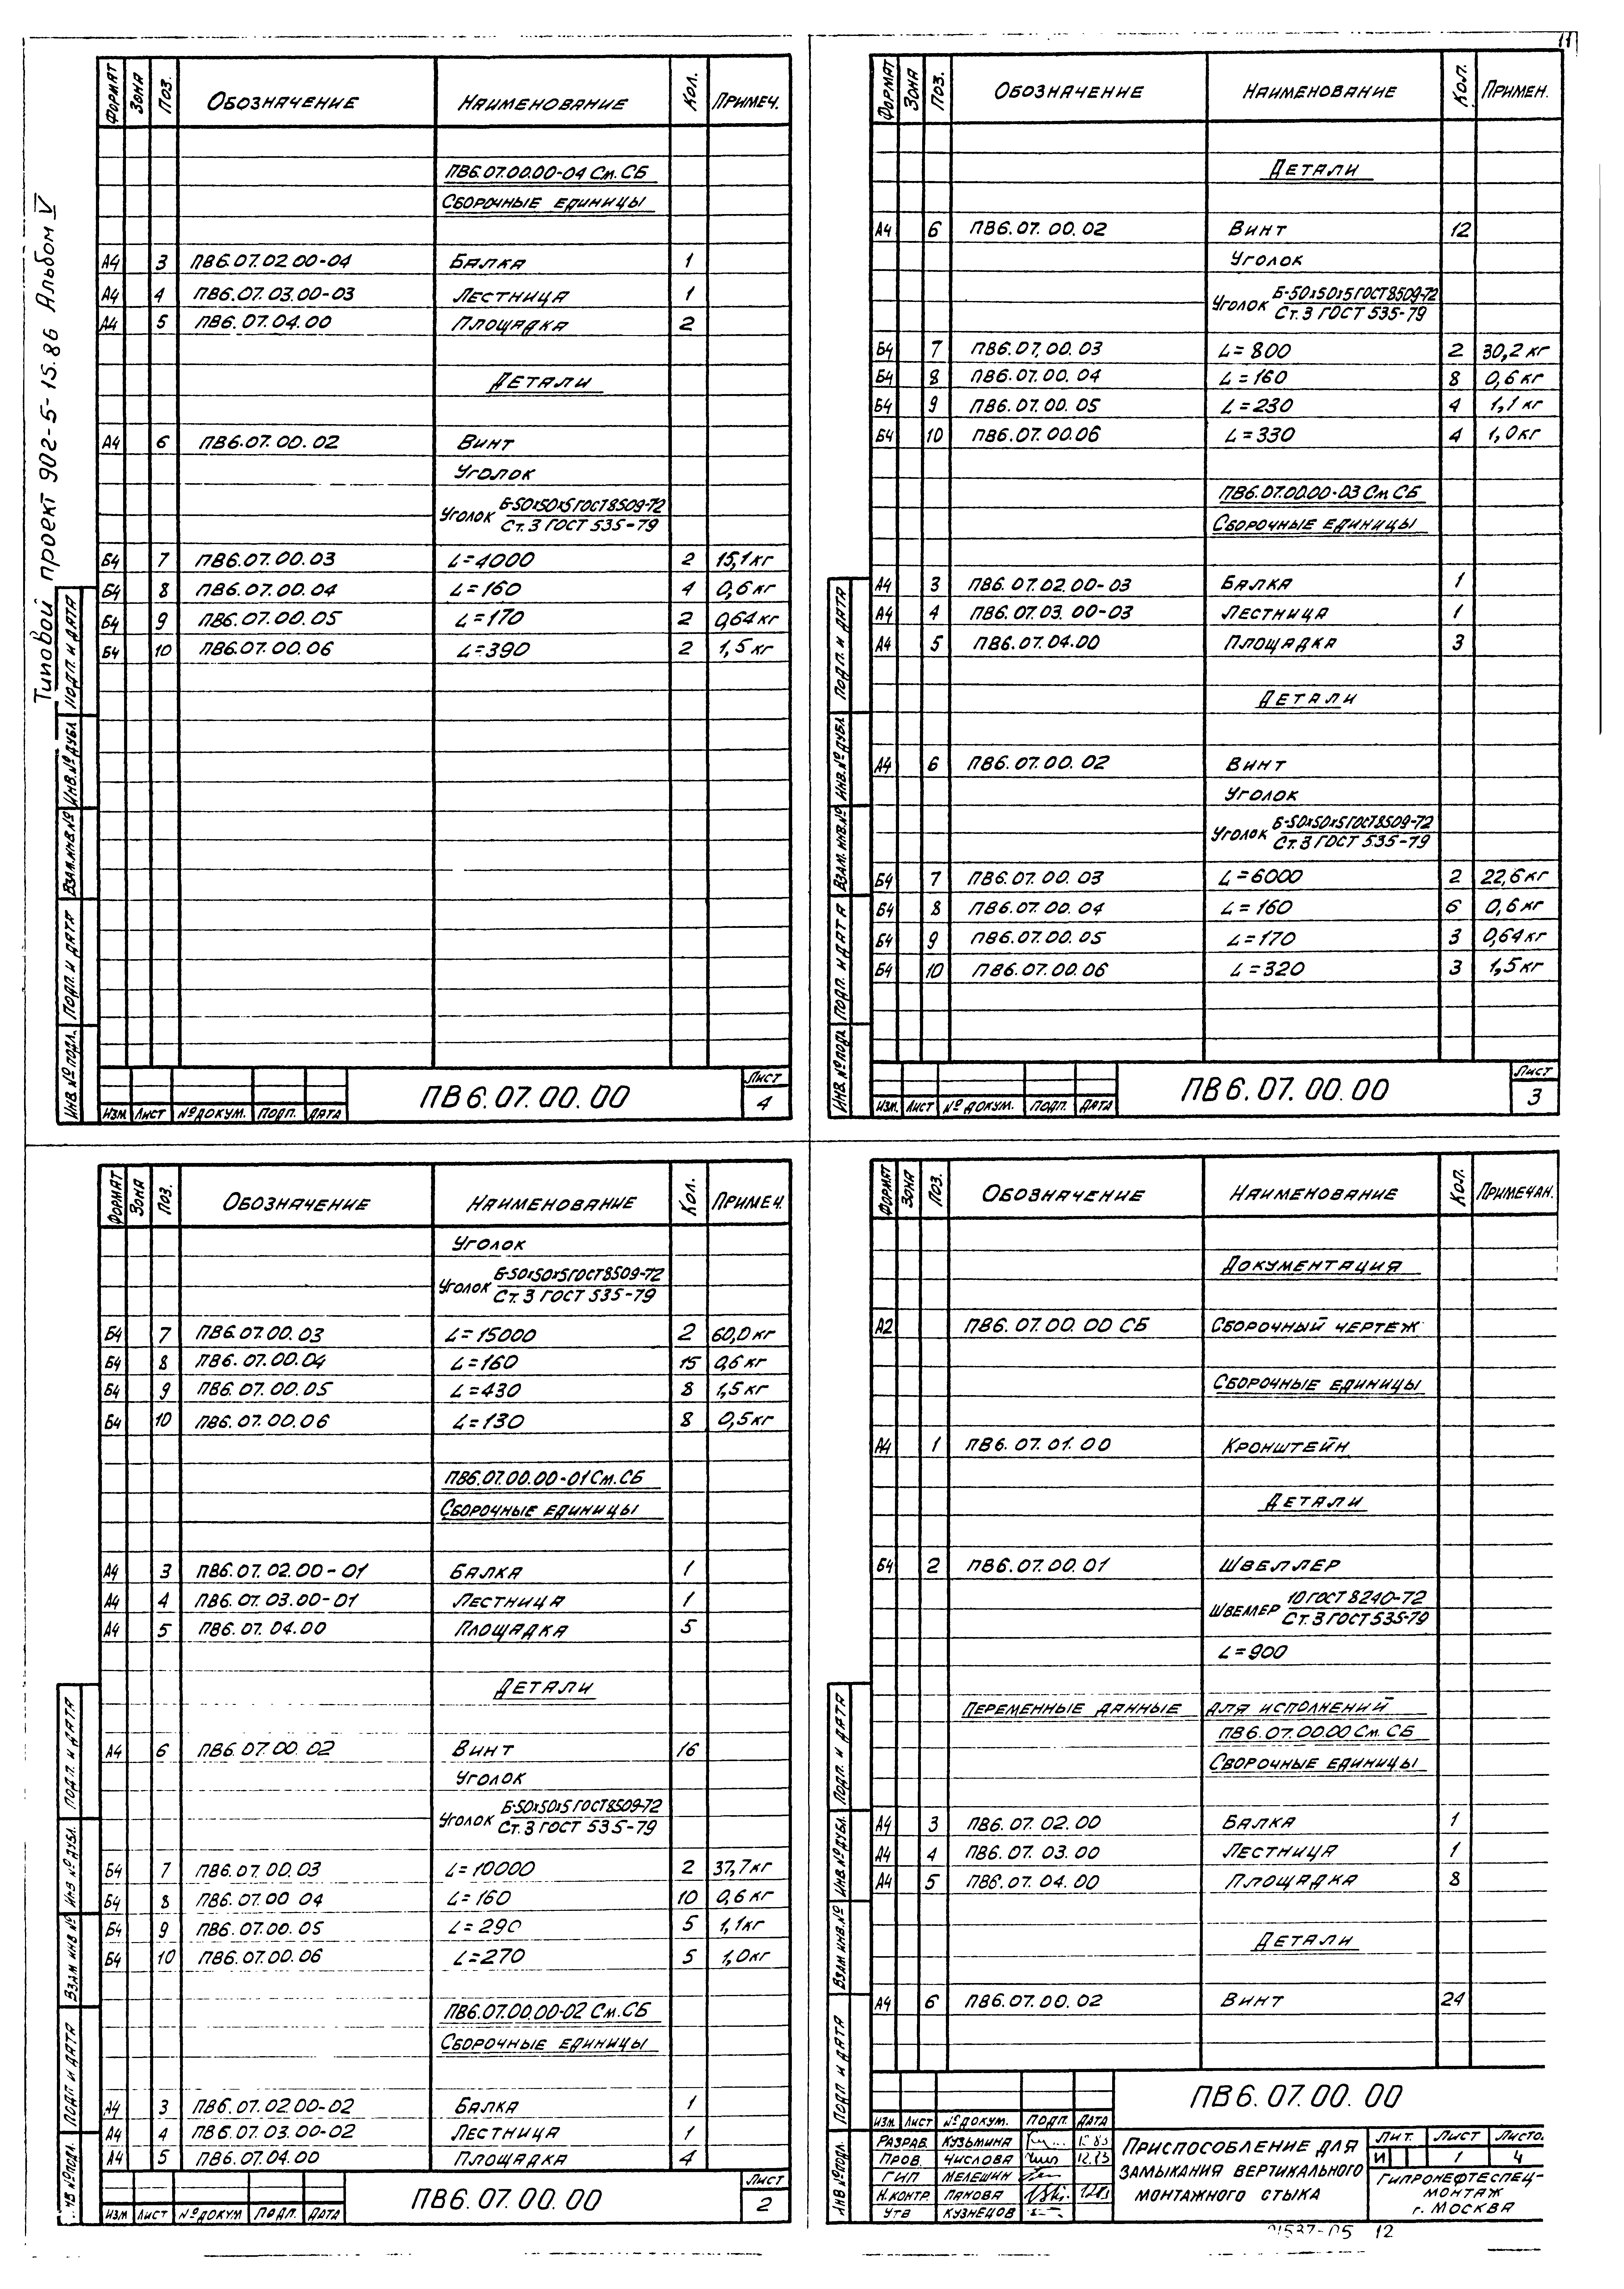 11
Типовой проект 902-5-15.86 Альбом V
Формат Зона Поз. Обозначение Наименование Кол. Примеч.
ПВ6.07.00.00-04 См.СБ
Сборочные единицы
А4 3 ПВ6.07.02.00-04 Балка 1
А4 4 ПВ6.07.03.00-03 Лестница 1
А4 5 ПВ6.07.04.00 Площадка 2
Детали
А4 6 ПВ6.07.00.02 Винт
Уголок
Уголок Б-50х50х5 ГОСТ 8509-72
Ст.3 ГОСТ 535-79
Б4 7 ПВ6.07.00.03 L=4000 2 15,1 кг
Б4 8 ПВ6.07.00.04 L=160 4 0,6 кг
Б4 9 ПВ6.07.00.05 L=170 2 0,64 кг
Б4 10 ПВ6.07.00.06 L=390 2 1,5 кг
Инв. № подл. Подп. и дата Взам. инв. № Инв. № дубл. Подп. и дата
Изм Лист № докум. Подп. Дата
ПВ6.07.00.00
Лист
4
Формат Зона Поз. Обозначение Наименование Кол. Примен.
Детали
А4 6 ПВ6.07.00.02 Винт 12
Уголок
Уголок Б-50х50х5 ГОСТ 8509-72
Ст.3 ГОСТ 535-79
Б4 7 ПВ6.07.00.03 L=800 2 30,2 кг
Б4 8 ПВ6.07.00.04 L=160 8 0,6 кг
Б4 9 ПВ6.07.00.05 L=230 4 1,1 кг
Б4 10 ПВ6.07.00.06 L=330 4 1,0 кг
ПВ6.07.00.00-03 См СБ
Сборочные единицы
А4 3 ПВ6.07.02.00-03 Балка 1
А4 4 ПВ6.07.03.00-03 Лестница 1
А4 5 ПВ6.07.04.00 Площадка 3
Детали
А4 6 ПВ6.07.00.02 Винт
Уголок
Уголок Б-50х50х5 ГОСТ 8509-72
Ст.3 ГОСТ 535-79
Б4 7 ПВ6.07.00.03 L=6000 2 22,6 кг
Б4 8 ПВ6.07.00.04 L=160 6 0,6 кг
Б4 9 ПВ6.07.00.05 L=170 3 0,64 кг
Б4 10 ПВ6.07.00.06 L=320 3 1,5 кг
Инв. № подл. Подп. и дата Взам. инв. № Инв. № дубл. Подп. и дата
Изм. Лист № докум. Подп. Дата
ПВ6.07.00.00
Лист
3
Формат Зона Поз. Обозначение Наименование Кол. Примеч.
Уголок
Уголок Б-50х50х5 ГОСТ 8509-72
Ст.3 ГОСТ 535-79
Б4 7 ПВ6.07.00.03 L=15000 2 60,0 кг
Б4 8 ПВ6.07.00.04 L=160 15 0,6 кг
Б4 9 ПВ6.07.00.05 L=430 8 1,5 кг
Б4 10 ПВ6.07.00.06 L=130 8 0,5 кг
ПВ6.07.00.00-01 См.СБ
Сборочные единицы
А4 3 ПВ6.07.02.00-01 Балка 1
А4 4 ПВ6.07.03.00-01 Лестница 1
А4 5 ПВ6.07.04.00 Площадка 5
Детали
А4 6 ПВ6.07.00.02 Винт 16
Уголок
Уголок Б-50х50х5 ГОСТ 8509-72
Ст.3 ГОСТ 535-79
Б4 7 ПВ6.07.00.03 L=10000 2 37,7 кг
Б4 8 ПВ6.07.00 04 L=160 10 0,6 кг
Б4 9 ПВ6.07.00.05 L=290 5 1,1 кг
Б4 10 ПВ6.07.00.06 L=270 5 1,0 кг
ПВ6.07.00.00-02 См.СБ
Сборочные единицы
А4 3 ПВ6.07.02.00-02 Балка 1
А4 4 ПВ6.07.03.00-02 Лестница 1
А4 5 ПВ6.07.04.00 Площадка 4
№ подл. Подп и дата Взам инв № Инв № дубл. Подп. и дата
Изм Лист № докум Подп. Дата
ПВ6.07.00.00
Лист
2
Формат Зона Поз. Обозначение Наименование Кол. Примечан.
Документация
А2 ПВ6.07.00.00 СБ Сборочный чертеж
Сборочные единицы
А4 1 ПВ6.07.01.00 Кронштейн
Детали
Б4 2 ПВ6.07.00.01 Швеллер
Швеллер 10 ГОСТ 8240-72
Ст.3 ГОСТ 535-79
L=900
Переменные данные для исполнений
ПВ6.07.00.00 См. СБ
Сборочные единицы
А4 3 ПВ6.07.02.00 Балка 1
А4 4 ПВ6.07.03.00 Лестница 1
А4 5 ПВ6.07.04.00 Площадка 8
Детали
А4 6 ПВ6.07.00.02 Винт 24
Инв № подл. Подп и дата Взам инв. № Инв. № дубл. Подп. и дата
ПВ6.07.00.00
Изм. Лист № докум. Подп. Дата
Разраб. Кузьмина
Пров. Числова 12.83
ГИП Мелешин
Н.контр. Панова
Утв Кузнецов
Приспособление для
замыкания вертикального
монтажного стыка
Лит. Лист Листо.
И 1 4
Гипронефтеспец-
монтаж
г. Москва
21537-05 12